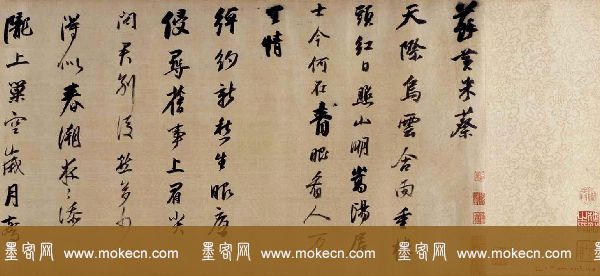 蘇黃米蔡
天際烏雲含雨重樓
頭紅日照山明嵩陽居
士今何在青眼看人萬
里情
綽約新嬌生眼底
侵尋舊事上眉尖
問君別後愁多少
得似春潮夜夜添
隴上巢空歲月驚
墨客网 www.mokecn.com 墨客网 www.mokecn.com 墨客网 www.mokecn.com 墨客网